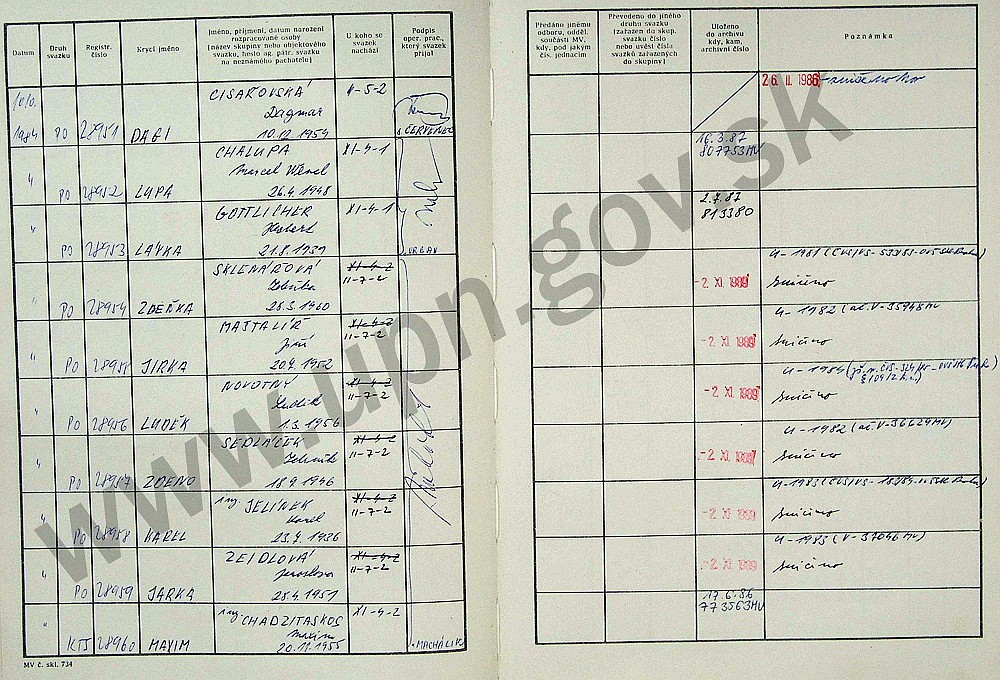 Datum
Druh svazku
Registr. číslo
Krycí jméno
Jméno, příjmení, datum narození
rozpracované osoby
(název skupiny nebo objektového
svazku, heslo ag. pátr. svazku
na neznámého pachatele)
U koho se
svazek
nachází
Podpis
oper. prac.,
který svazek
přijal
Předáno jinému
odboru, odděl.
součásti MV,
kdy, pod jakým
čís. jednacím
Převedeno do jiného
druhu svazku
(zařazen do skup.
svazku číslo
nebo uvést čísla
svazků zařazených
do skupiny)
Uloženo
do archivu
kdy, kam,
archivní číslo
Poznámka
10/10. 1984 PO 28951 DAGI CISAŘOVSKÁ Dagmar 10.12.1954 V-5-2 ČERVENEC 26. II. 1986
" PO 28952 LUPA CHALUPA Marcel 26.4.1948 XI-4-1 16.3.87 807753MV
" PO 28953 LAVKA GOTTLICHER Robert 21.8.1939 XI-4-1 URBAN 2.7.87 813380
" PO 28954 ZDEŇKA SKLENÁŘOVÁ Zdeňka 28.3.1960 XI-4-2 II-7-2 -2. XI. 1989 Zničeno
" PO 28955 JIRKA MAJTALÍŘ Jiří 20.4.1952 XI-4-2 II-7-2 -2. XI. 1989 U-1982 (ač. V-35948MV Zničeno
" PO 28956 LUDĚK NOVOTNÝ Luděk 1.3.1956 XI-4-2 II-7-2 -2. XI. 1989 U-1984 Zničeno
" PO 28957 ZDENO SEDLÁČEK Zdeněk 18.9.1946 XI-4-2 II-7-2 -2. XI. 1989 U-1982 (ač. V-36629MV) Zničeno
" PO 28958 KAREL Ing. JELÍNEK Karel 23.4.1936 XI-4-2 II-7-2 -2. XI. 1989 Zničeno
" PO 28959 JARKA ZEIDLOVÁ Jaroslava 28.4.1951 XI-4-2 II-7-2 -2. XI. 1989 U-1983 (V-37046MV) Zničeno
" KTS 28960 MAXIM Ing. CHADZITASKOS Maxim 20.11.1955 XI-4-2 MACHÁLIK 17.6.86 773563MV
MV č. skl. 734
www.upn.gov.sk